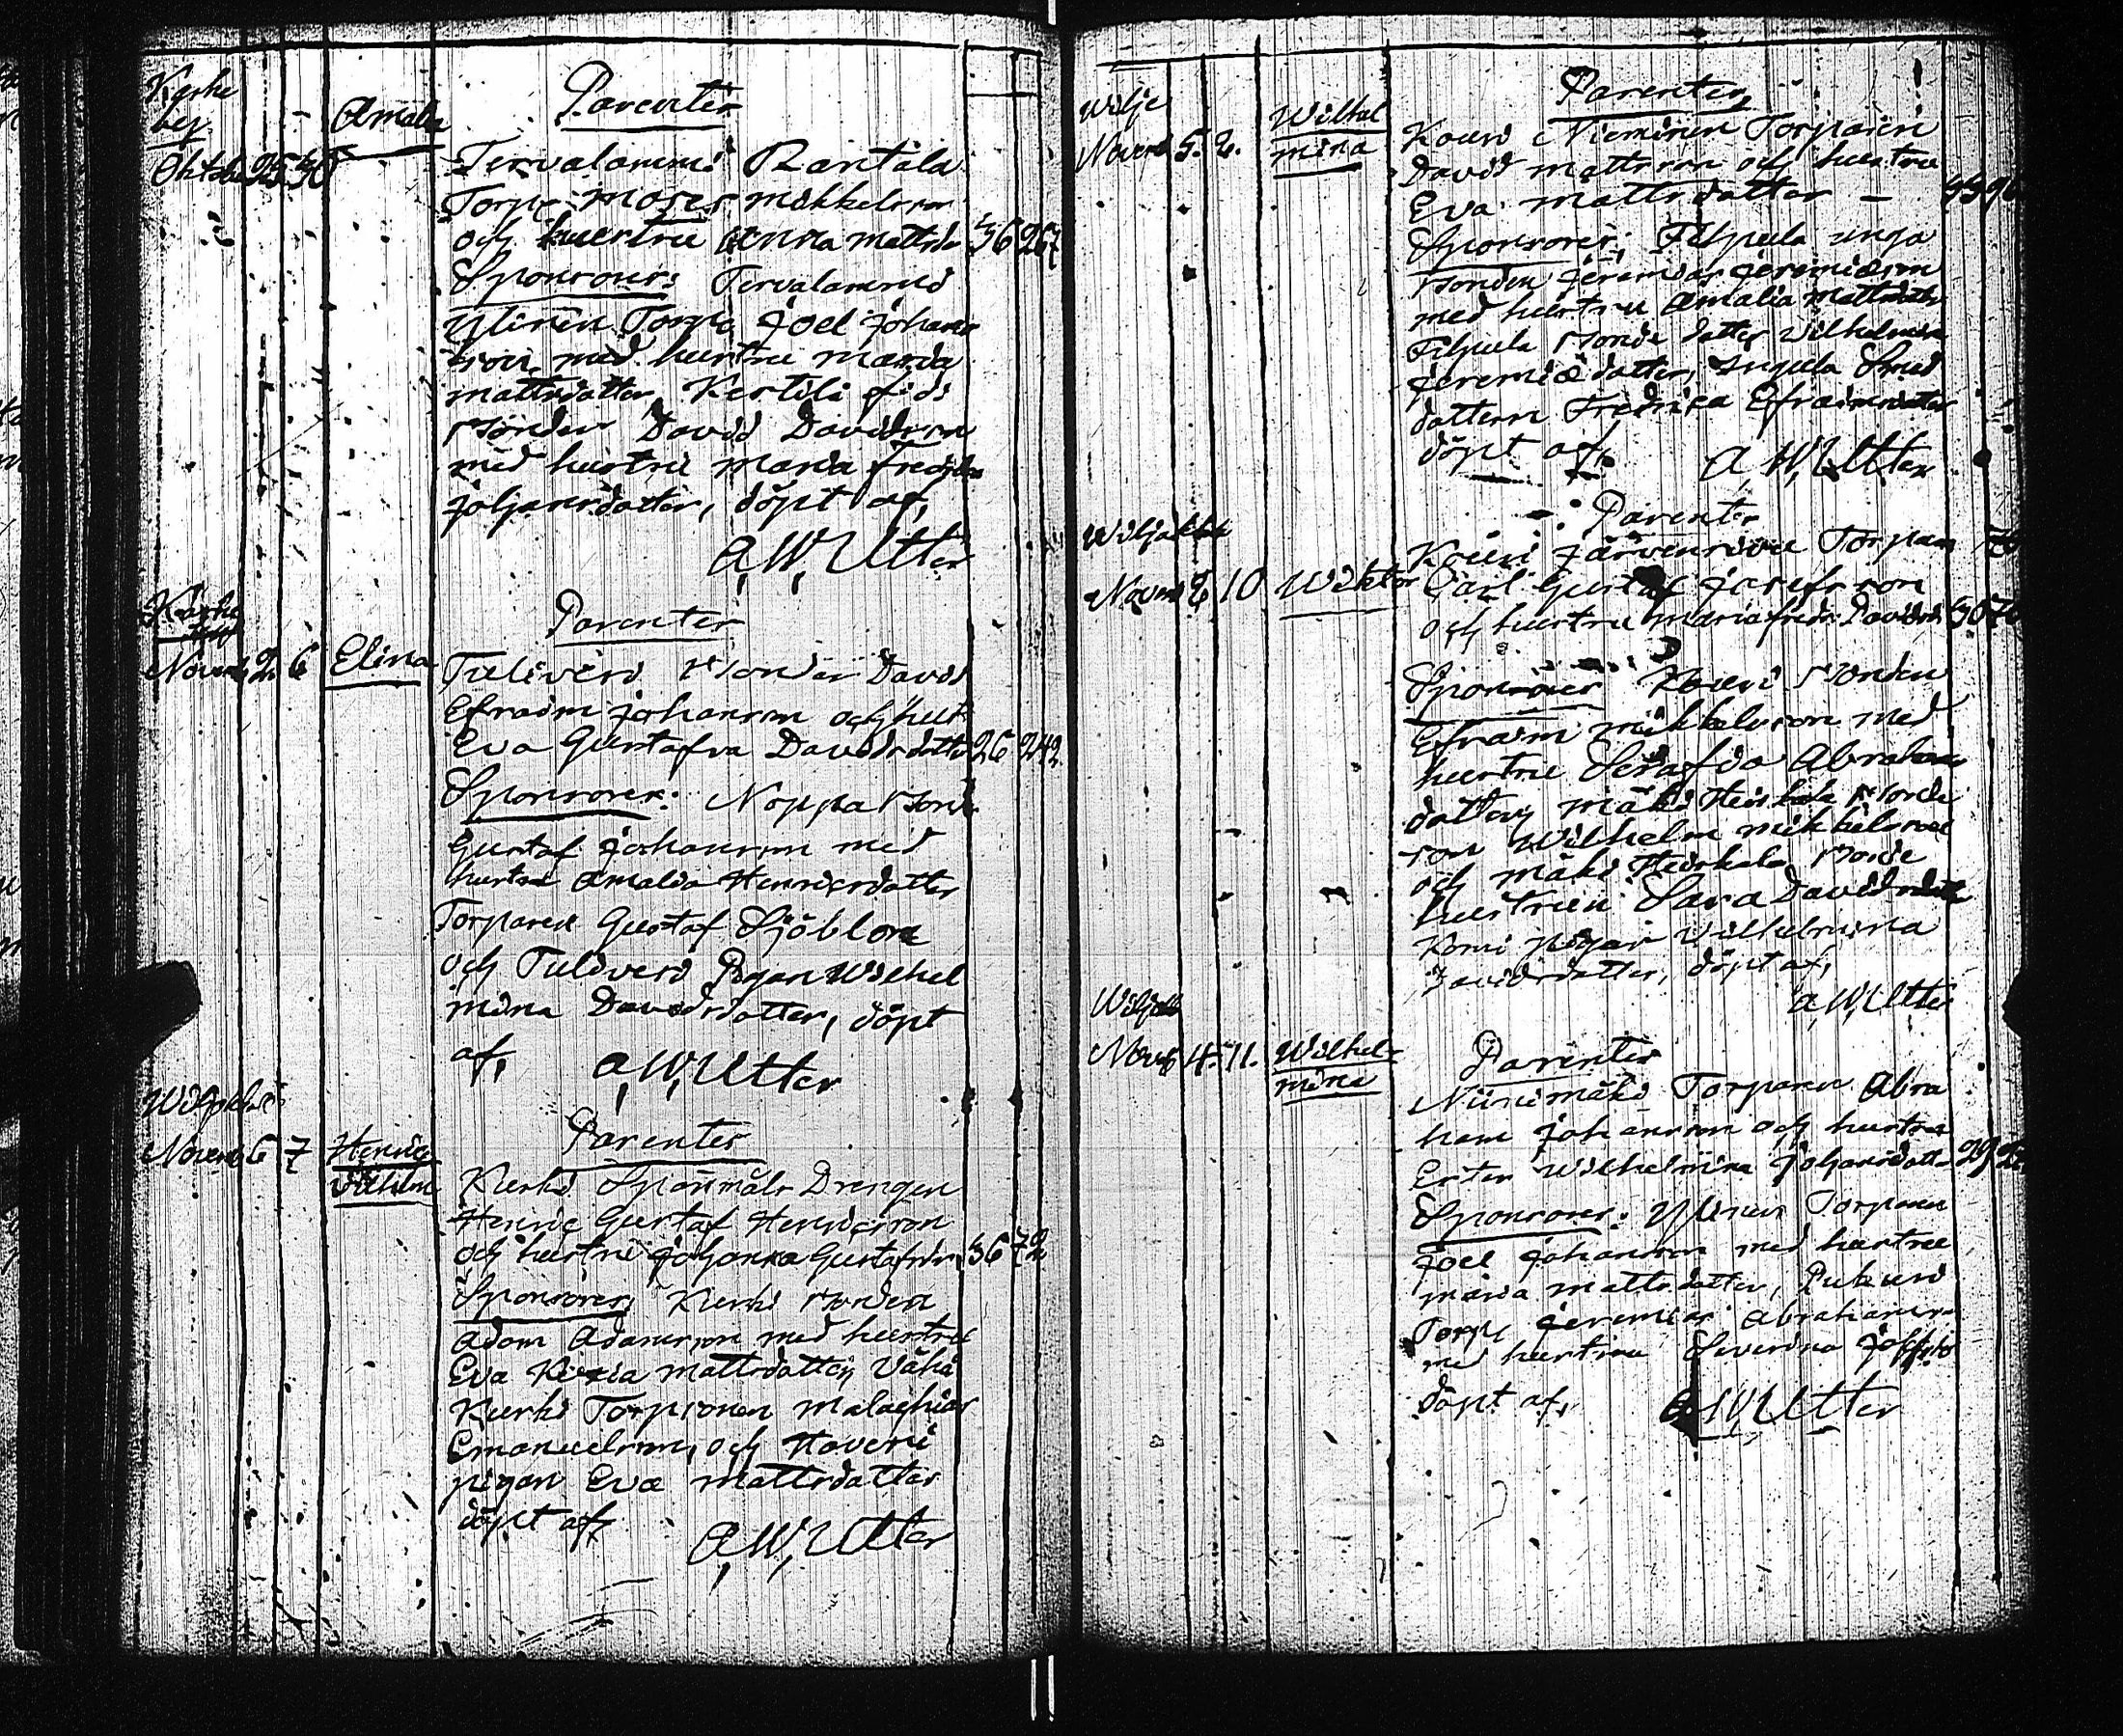 Parenter
Amalia
Tervalammi Rantala
Oktob 25 30
Torp. Moses Mikkelsson
och hustru Anna Mattsdr 36 267
Sponsorer: Tervalammi
Ylinen Torp. Joel Johans
son med hustru Maria
Mattsdotter Kertili
Bonden David Davidsson
med hustru Maria Fredrika
Johansdotter, döpt af,
A, W, Utter
Parenter
Novem 2 6 Elina
Tuliveri Bonden David
Efraim Johansson och hust
Eva Gustafva Davidsdotter 26 242
Sponsorer: Noppa Bond
Gustaf Johansson med
hustru Amalia Henricsdotter
Torparen Gustaf Sjöblom
och Tuliveri Pigan Wilhel
mina Davidsdotter, döpt
af, A, W, Utter
Parenter
Novem 6 7 Henric
Vilhelm
Kurki Spannmåls Drengen
Henric Gustaf Henricsson
och hustru Johanna Gustafsdr 36 72
Sponsorer; Kurki Bonden
Adam Adamsson med hustru
Eva Mattsdotter, Vähä
Kurki Torp sonen Malachias
Emanuelsson, och Haveri
pigan Eva Mattsdotter
döpt af,
A, W, Utter
Wilje
Parenter
Novem 5. 6. Wilhel
mina
Kouri Nieminen Torparen
David Mattsson och hustru
Eva Mattsdotter –
Sponsorer; Filpula unga
Bonden Jeremias Jeremiæson
med hustru Amalia Mattsdotter
Filpula Bonde dotter Wilhelmina
Jeremiædotter, Smed
dottern Fredrica Efraimsdotter
döpt af,
A W, Utter
Parenter
Kouri Järvensivu Torparen
Novem 2 10 Wiktor
Carl Gustaf Josefsson
och hustru Maria Fredr. Davidsdr
Sponsorer Kouri Bonden
Efraim Mikkelsson med
hustru Serafia Abrahams
dotter, Mäki Heiskala Bonde
son Wilhelm Mikkelsson
och Mäki Heiskala Bonde
hustrun Sara Davidsdotter
Pigan Vilhelmina
Davidsdotter, döpt af,
A, W, Utter
Novem 4. 11. Wilhel-
mina
Parenter
Niinimäki Torparen Abra
ham Johansson och hustru
Ester Wilhelmina Johansdotter
Sponsorer: Ylinen Torparen
Joel Johansson med hustru
Maria Mattsdotter,
Torp Jeremias Abrahamsson
med hustru Severina
döpt af, A W, Utter